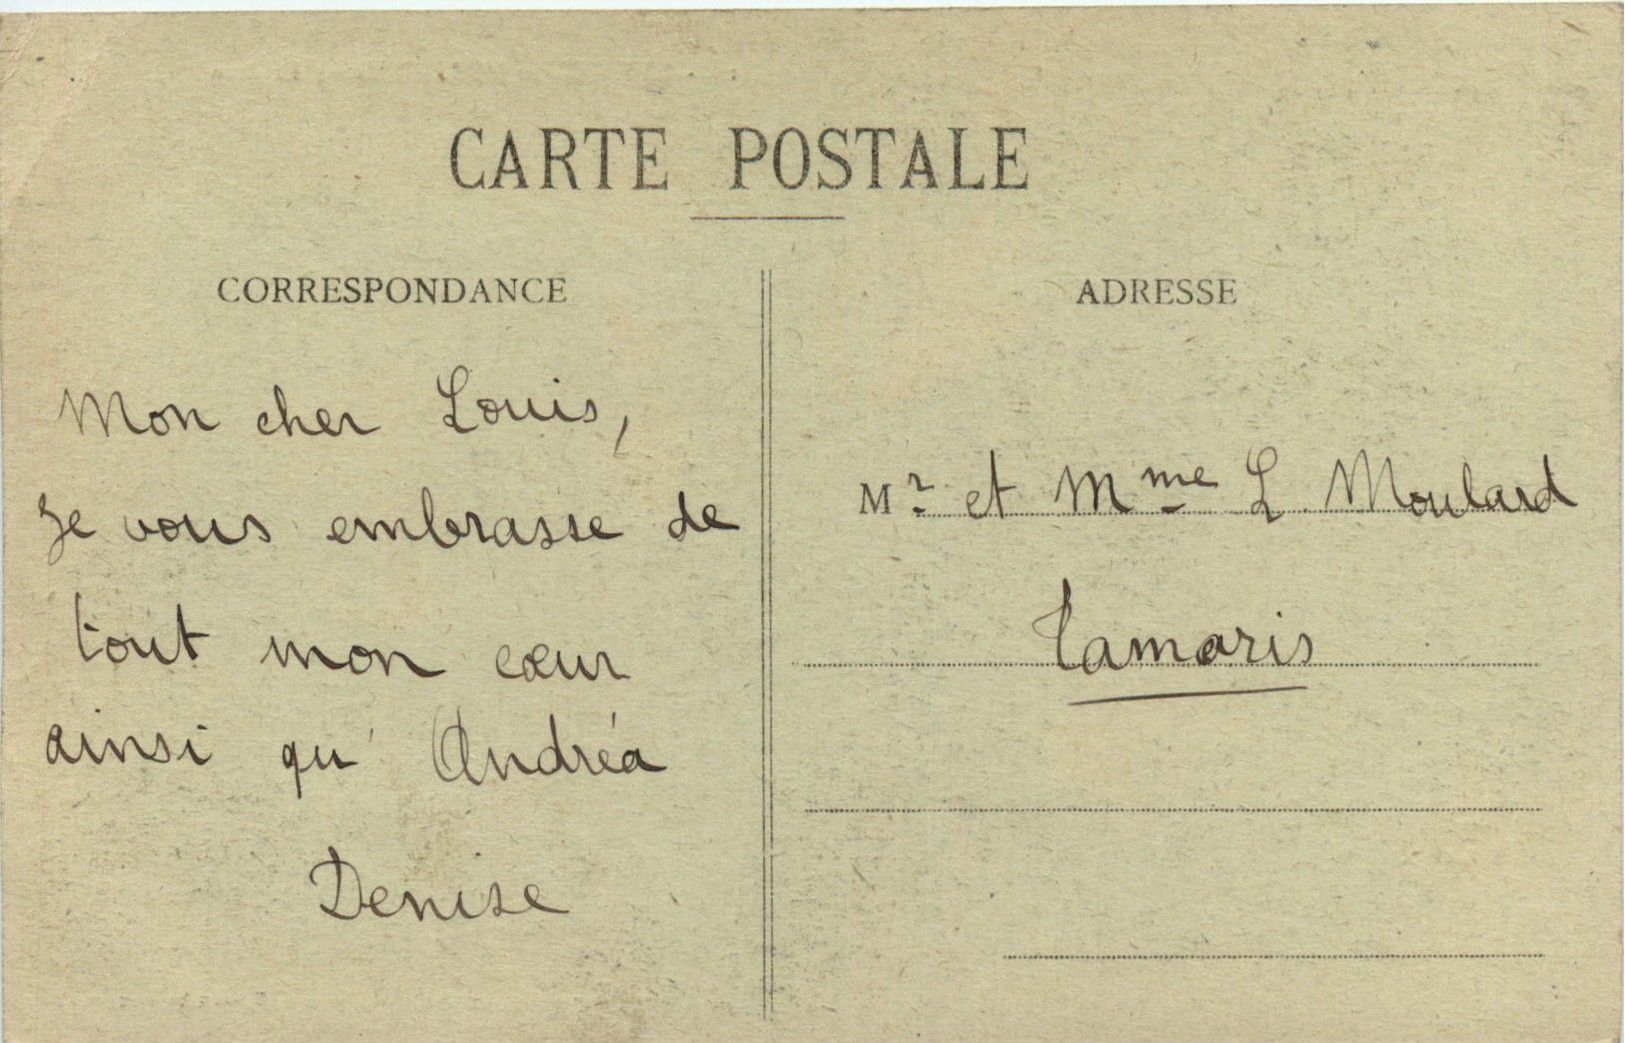 CARTE POSTALE
CORRESPONDANCE
Mon cher Louis,
Je vous embrasse de
tout mon cœur
ainsi qu' Andréa
Denise
ADRESSE
Mr et Mme L. Moulard
Tamaris